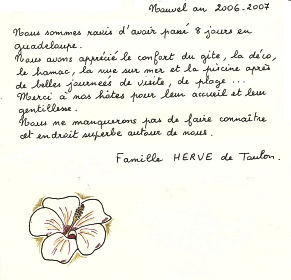 Nouvel an 2006-2007
Nous sommes ravis d'avoir passé 8 jours en
Guadeloupe.
Nous avons apprécié le confort du gîte, la déco,
le hamac, la vue sur mer et la piscine après
de belles journées de visite, de plage ...
Merci à nos hôtes pour leur accueil et leur
gentillesse.
Nous ne manquerons pas de faire connaître
cet endroit superbe autour de nous.
Famille HERVE de Toulon.